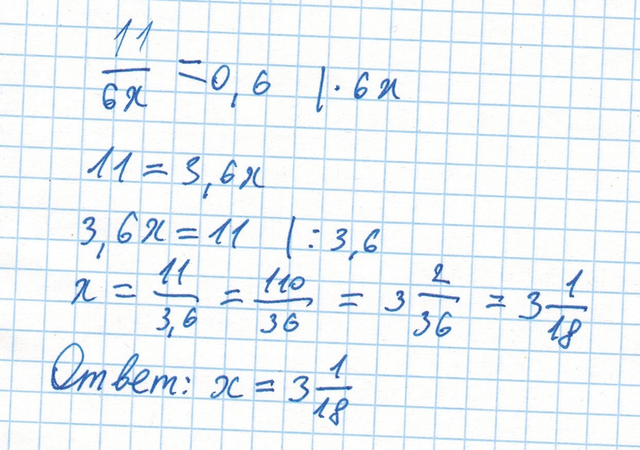 11/6x = 0,6 | · 6x
11 = 3,6x
3,6x = 11 | : 3,6
x = 11/3,6 = 110/36 = 3 2/36 = 3 1/18
Ответ: x = 3 1/18